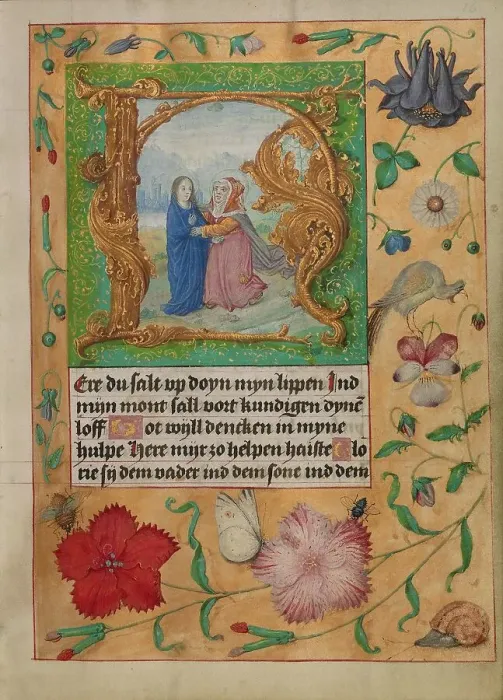 Ere du salt vp doyn myn lippen Ind
mijn mont sall vort kundigen dynē
loff Got wyll dencken in myne
hulpe Here mijr zo helpen haiste Glo
rie sy dem vader ind dem sone ind dem